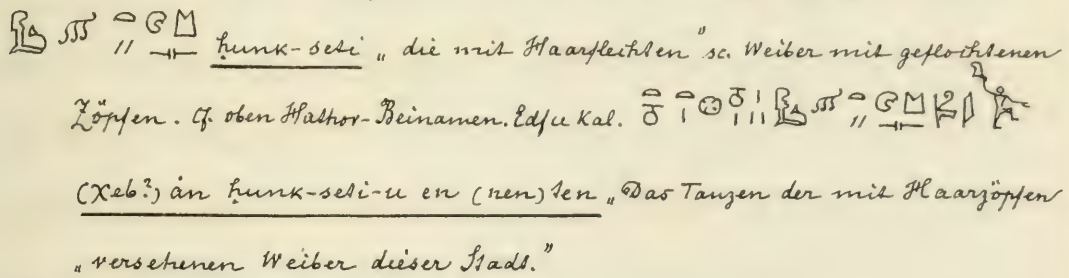 ḥunk-seti „die mit Haarflechten" sc. Weiber mit geflochtenen
Zöpfen. Cf. oben Hathor-Beinamen. Edfu Kal.
(Xeb?) ȧn ḥunk-seti-u en (nen) ten „Das Tanzen der mit Haarzöpfen
„versehenen Weiber dieser Stadt."